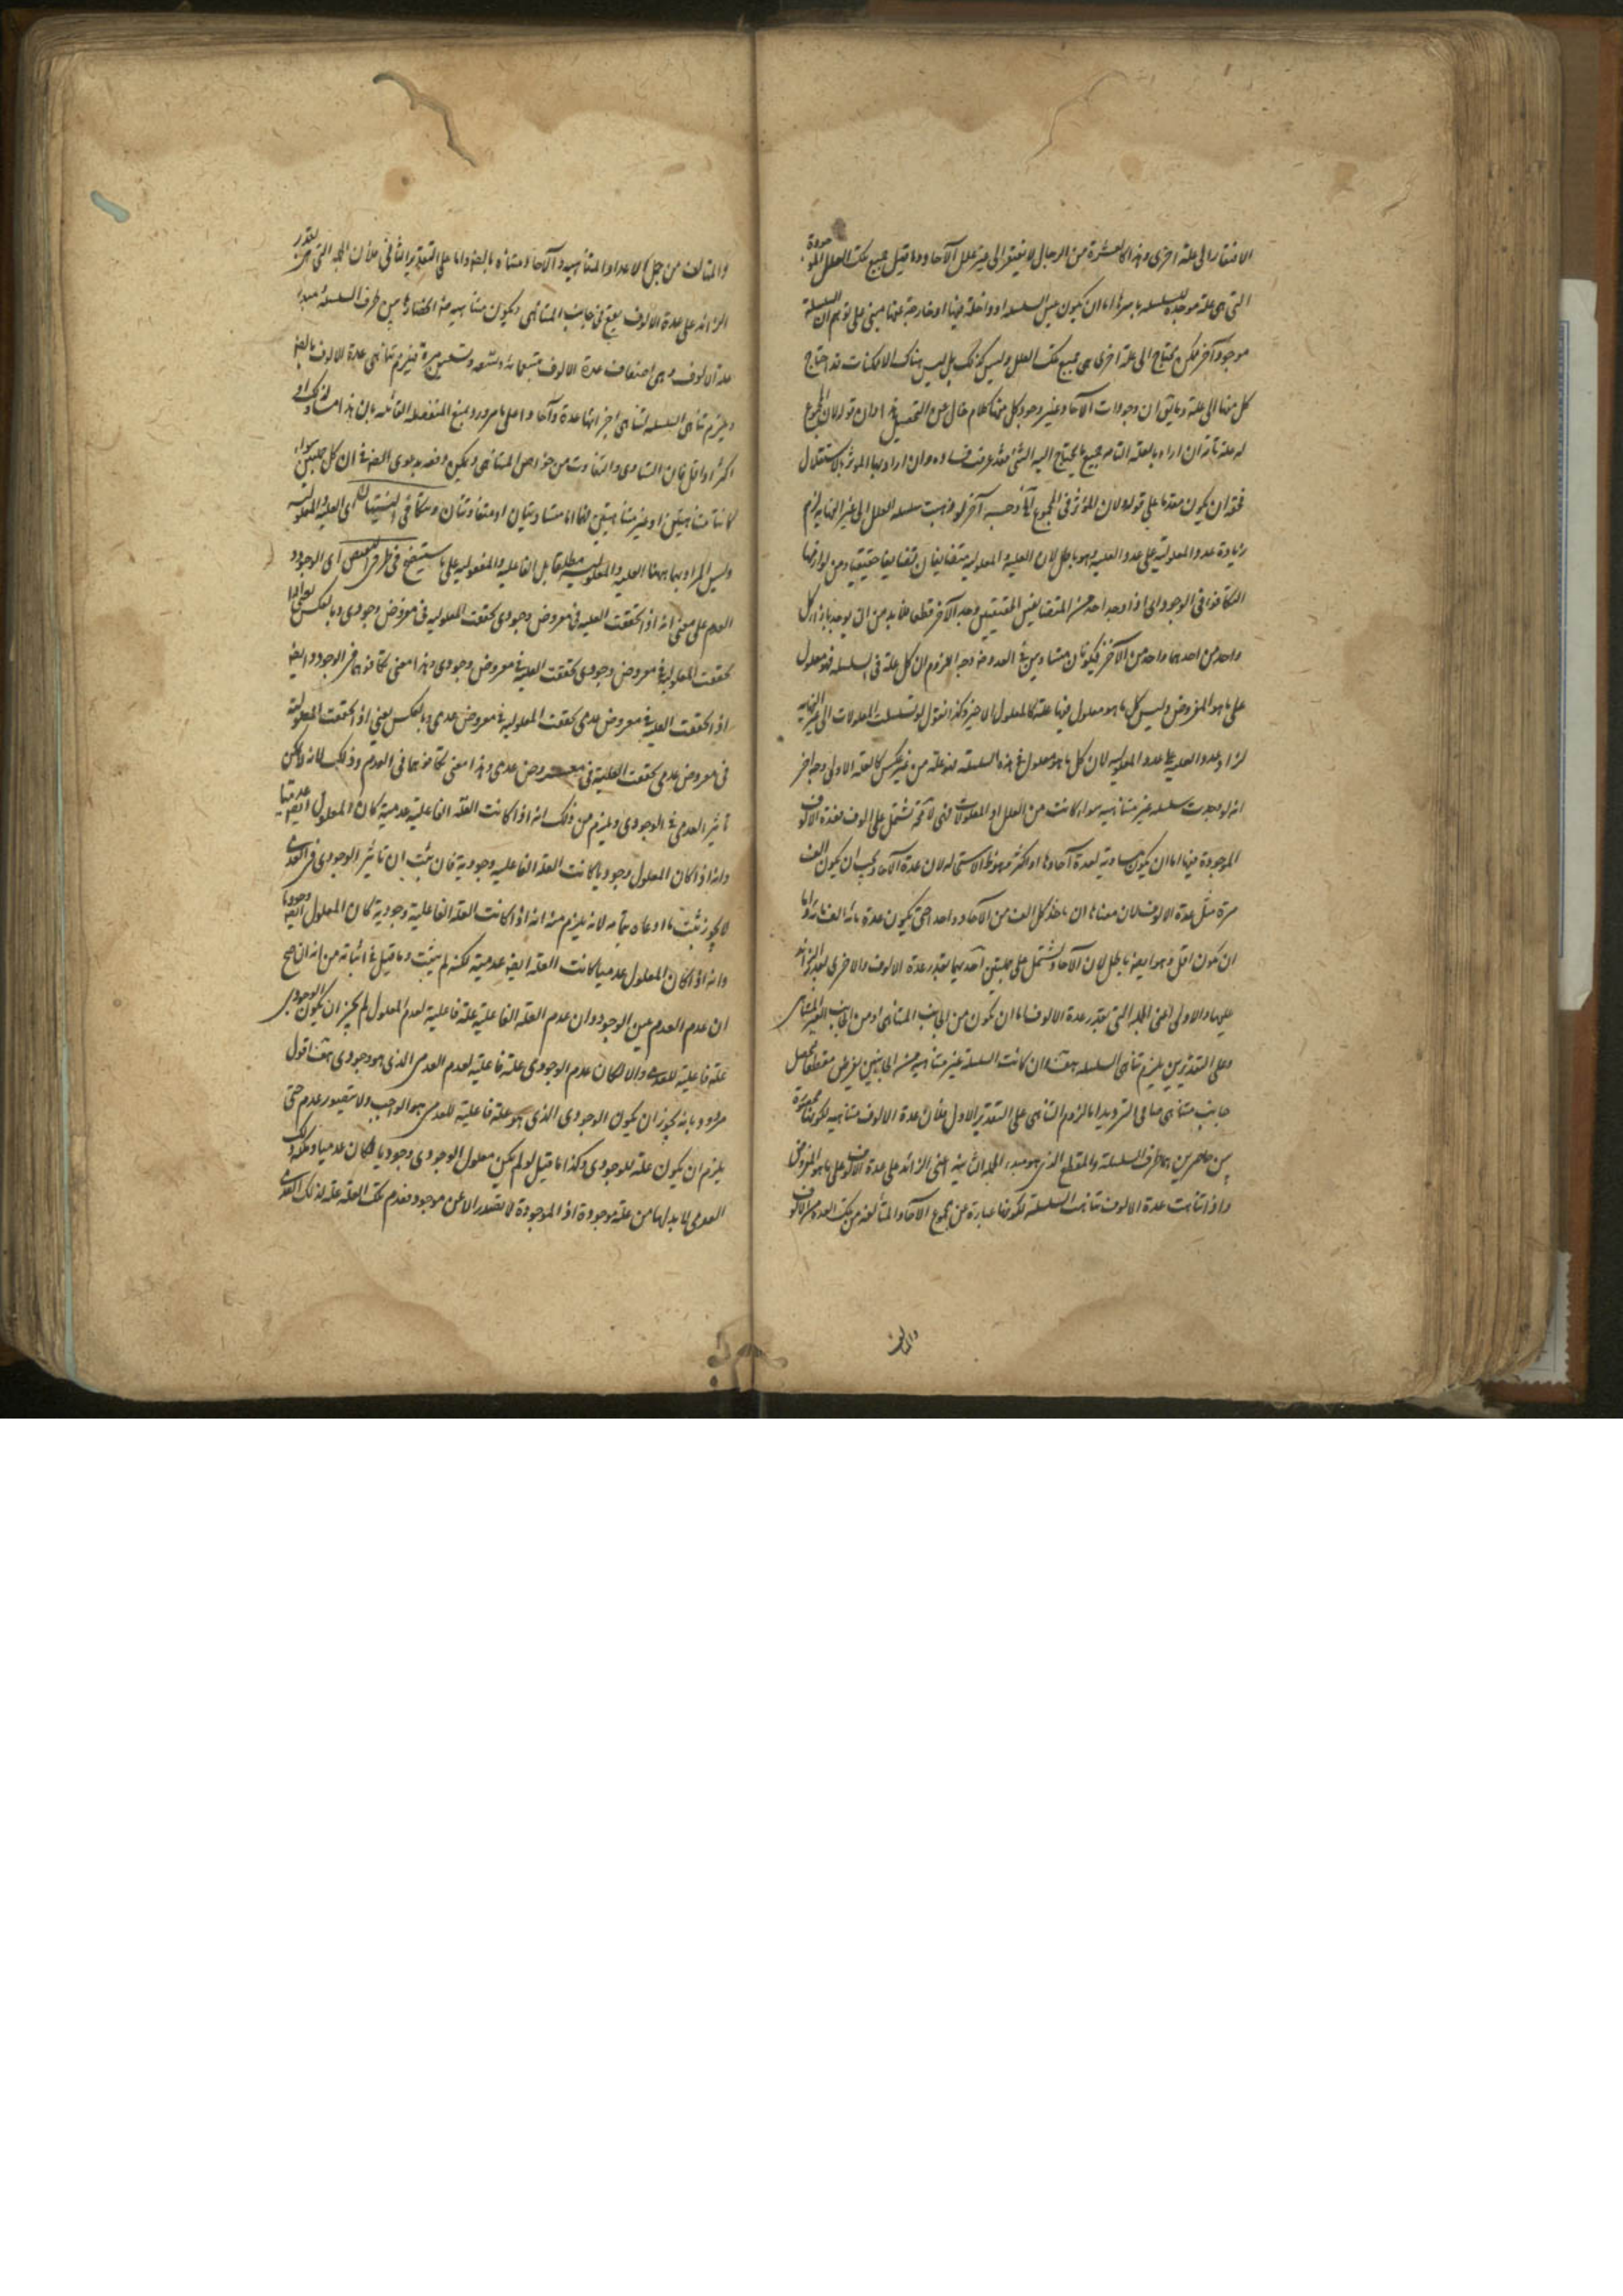 الافتقار الى علة اخرى وهذا كالعشرة من الرجال لا يفتقر الى غير علل الآحاد وما قيل جميع تلك العلل الموجودة
التى هى علة موجدة للسلسلة باسرها اما ان يكون عين السلسلة او داخلة فيها او خارجة عنها مبنى على توهم ان السلسلة
موجود آخر ممكن يحتاج الى علة اخرى هى جميع تلك العلل وليس كذلك بل ليس هناك الا ممكنات قد احتاج
كل منها الى علة وما يق ان وجودات الآحاد غير وجود كل منها كلام خال عن التحصيل قوله لان المجموع
له علة تامة ان اراد بالعلة التامة جميع ما يحتاج اليه الشئ فقد عرفت فساده وان اراد بها المؤثر بالاستقلال
فحقه ان يكون مقدما على قوله ولان المؤثر فى المجموع وجه آخر لو ذهبت سلسلة العلل الى غير النهاية لزم
زيادة عدد المعلولية على عدد العلية وهو باطل لان العلية والمعلولية متضايفان تضايفا حقيقيا ومن لوازمها
التكافؤ فى الوجود اى اذا وجد احد من المتضايفين الحقيقيين وجد الآخر قطعا فلا بد من ان يوجد بازاء كل
واحد من احدهما واحد من الآخر فيكونان متساويين فى العدد وجه اللزوم ان كل علة فى السلسلة فهو معلول
على ما هو المفروض وليس كل ما هو معلول فيها علة كالمعلول الاخير وكذا نقول لو تسلسلت المعلولات الى غير النهاية
لزاد عدد العلية على عدد المعلولية لان كل ما هو معلول فى هذه السلسلة فهو علة من غير عكس كالعلة الاولى وجه آخر
انه لو وجدت سلسلة غير متناهية سواء كانت من العلل او المعلولات فهى لا محة تشتمل على الوف فعدة الالوف
الموجودة فيها اما ان يكون مساوية لعدة آحادها او اكثر وهو ظ الاستحالة لان عدة الآحاد يجب ان يكون الف
مرة مثل عدة الالوف لان معناها ان ناخذ كل الف من الآحاد واحدا حتى يكون عدة مائة الف مائة واما
ان تكون اقل وهو ايضا باطل لان الآحاد تشتمل على جملتين احديهما بقدر عدة الالوف والاخرى بقدر الزائد
عليها والاولى اعنى الجملة التى بقدر عدة الالوف اما ان تكون من الجانب المتناهى او من الجانب الغير المتناهى
وعلى التقديرين يلزم تناهى السلسلة هف وان كانت السلسلة غير متناهية من الجانبين نفرض مقطعا فيحصل
جانب متناهى فياتى الترديد اما لزوم التناهى على التقدير الاول فلان عدة الالوف متناهية لكونها محصورة
بين حاصرين هما طرف السلسلة والمقطع الذى هو مبدء الجملة الثانية اعنى الزائد على عدة الالوف على ما هو المفروض
واذا تناهت عدة الالوف تناهت السلسلة لكونها عبارة عن مجموع الآحاد المتألفة من تلك العدة من الالوف
والمتالف
والمتالف من جمل الاعداد المتناهية والآحاد متناه بالضرورة واما على التقدير الثانى فلان الجملة التى هى بقدر
الزائد على عدة الالوف يقع فى جانب المتناهى ويكون متناهية ضرورة انحصارها بين طرف السلسلة ومبدء
عدة الالوف وهى اضعاف عدة الالوف بتسعمائة وتسعة وتسعين مرة فيلزم تناهى عدة الالوف بالضرورة
ويلزم تناهى السلسلة لتناهى اجزائها عدة وآحادا على ما مر ورد بمنع المنفصلة القائلة بان هذا مساو لذلك او
اكثر او اقل فان التساوى والتفاوت من خواص المتناهى ويمكن دفعه بدعوى الضرورة فى ان كل جملتين سواء
كانتا متناهيتين او غير متناهيتين فهما اما متساويتان او متفاوتتان ويتكافى النسبتان اى العلية والمعلولية
وليس المراد بهما ههنا العلية والمعلولية مطلقا بل الفاعلية والمنفعولية على ما سيتضح فى طرفى النقيض اى الوجود و
العدم على معنى انه اذا تحققت العلية فى معروض وجودى تحققت المعلولية فى معروض وجودى وبالعكس يعنى اذا
تحققت المعلولية فى معروض وجودى تحققت العلية فى معروض وجودى وهذا معنى تكافوهما فى الوجود وايضا
اذا تحققت العلية فى معروض عدمى تحققت المعلولية فى معروض عدمى وبالعكس يعنى اذا تحققت المعلولية
فى معروض عدمى تحققت العلية فى معروض عدمى وهذا معنى تكافوهما فى العدم وذلك لانه لا يمكن
تأثير العدمى فى الوجودى ويلزم من ذلك انه اذا كانت العلة الفاعلية عدمية كان المعلول ايضا عدميا
وانه اذا كان المعلول وجوديا كانت العلة الفاعلية وجودية فان ثبت ان تأثير الوجودى فى العدمى
لا يجوز ثبت ما ادعاه بتمامه لانه يلزم منه انه اذا كانت العلة الفاعلية وجودية كان المعلول ايضا وجوديا
وانه اذا كان المعلول عدميا كانت العلة ايضا عدمية لكنه لم يثبت وما قيل فى اثباته من انه ان صح
ان عدم العدم عين الوجود وان عدم العلة الفاعلية علة فاعلية لعدم المعلول لم يجز ان يكون الوجودى
علة فاعلية للعدمى والا لكان عدم الوجودى علة فاعلية لعدم العدمى الذى هو وجودى هف اقول
مردود بانه يجوز ان يكون الوجودى الذى هو علة فاعلية للعدمى هو الواجب ولا يتصور عدمه حتى
يلزم ان يكون علة للوجودى وكذا ما قيل لو لم يكن معلول الوجودى وجوديا لكان عدميا وذلك
العدمى لا بد لها من علة موجودة اذ الموجودة لا تصدر الا عن موجود فعدم تلك العلة علة لذلك العدمى